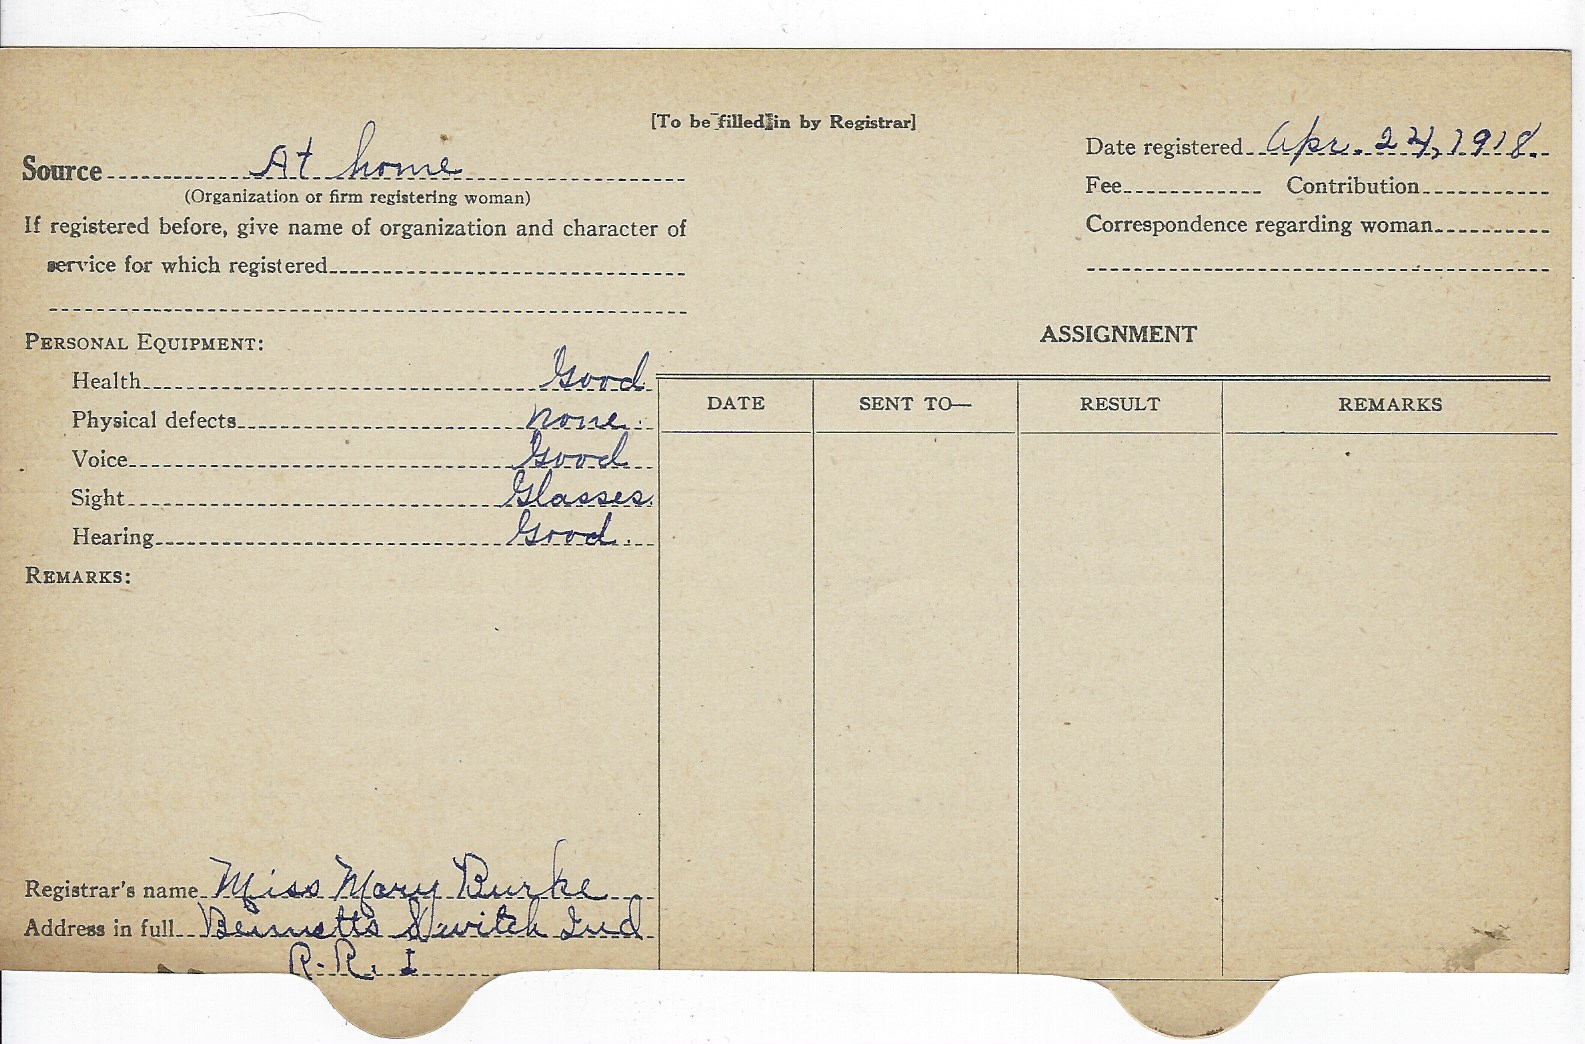 [To be filled in by Registrar]
Source At home
(Organization or firm registering woman)
If registered before, give name of organization and character of
service for which registered
Date registered Apr. 24, 1918.
Fee Contribution
Correspondence regarding woman
PERSONAL EQUIPMENT:
Health Good
Physical defects none.
Voice Good
Sight Glasses.
Hearing Good.
REMARKS:
ASSIGNMENT
DATE SENT TO— RESULT REMARKS
Registrar's name Miss Mary Burke
Address in full Bennetts Switch Ind
R. R. 1